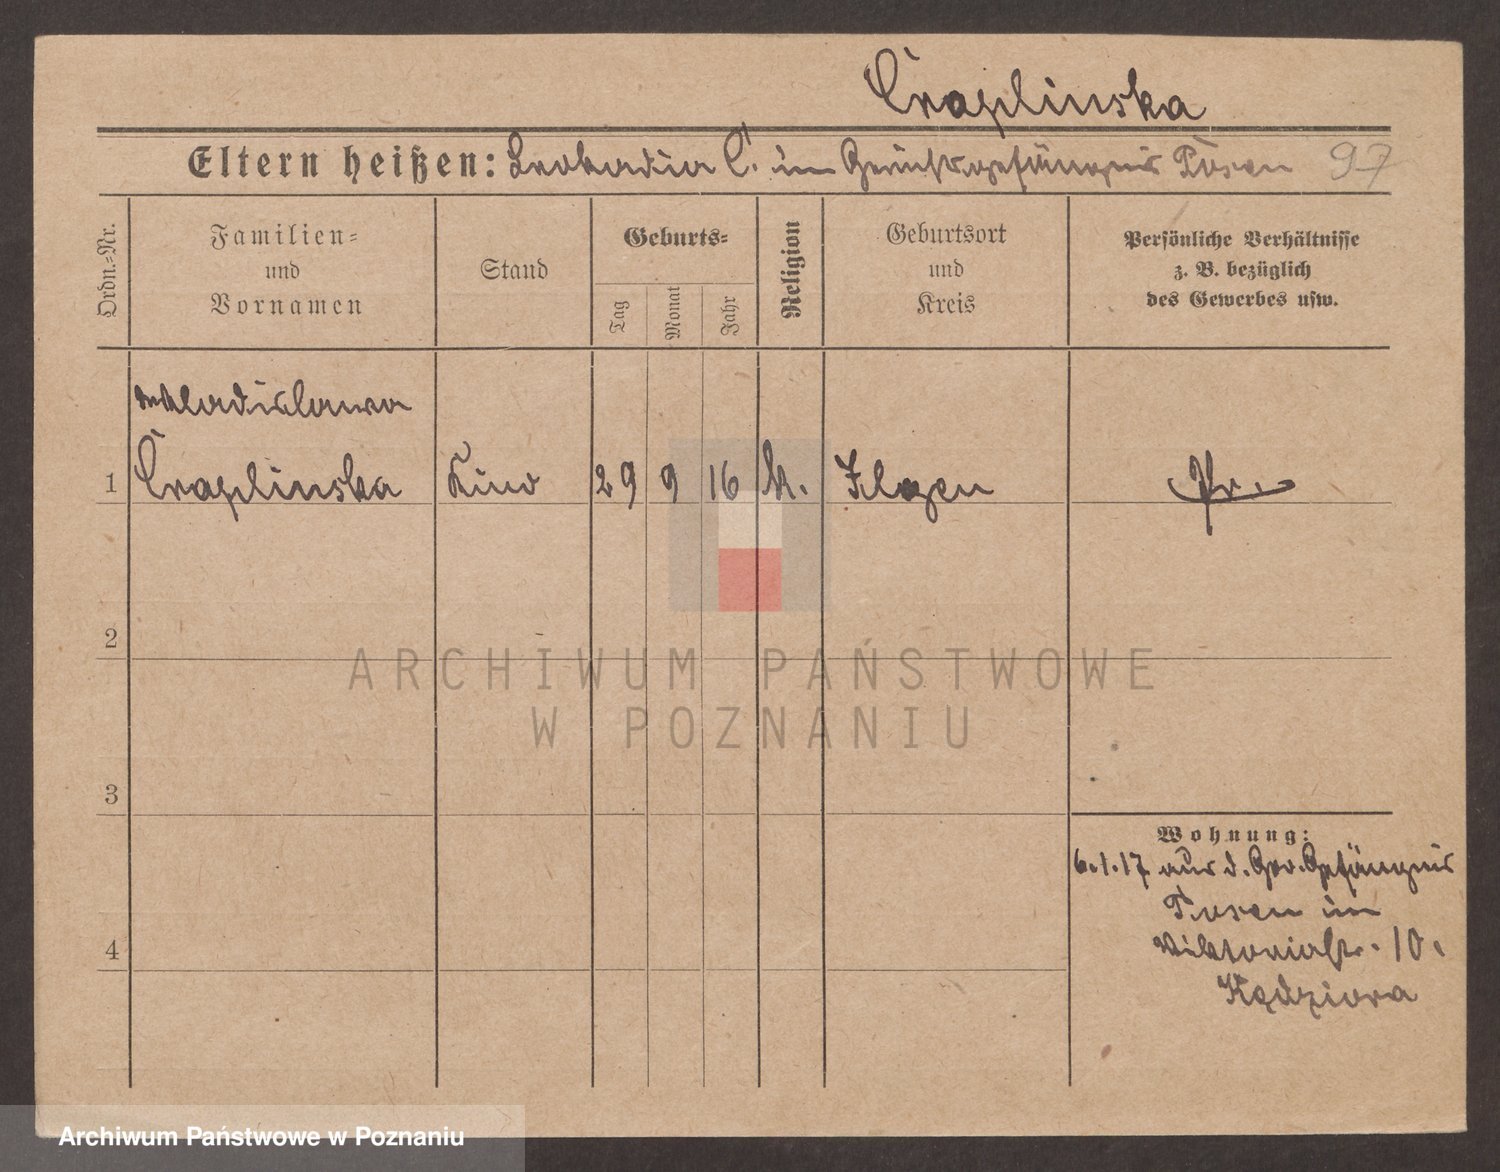 Czaplinska
Eltern heißen: Leokadia C. im Gerichtsgefängnis Posen 97
Ordn.-Nr.
Familien-
und
Vornamen
Stand
Geburts-
Tag
Monat
Jahr
Religion
Geburtsort
und
Kreis
Persönliche Verhältnisse
z. B. bezüglich
des Gewerbes usw.
Wladislawa
1 Czaplinska Kind 29 9 16 k. Ilgen Pr.
2
ARCHIWUM PAŃSTWOWE
W POZNANIU
3
Wohnung:
6.1.17 aus d. Ger. Gefängnis
Posen in
4 Viktoriastr. 10.
Kędziora
Archiwum Państwowe w Poznaniu